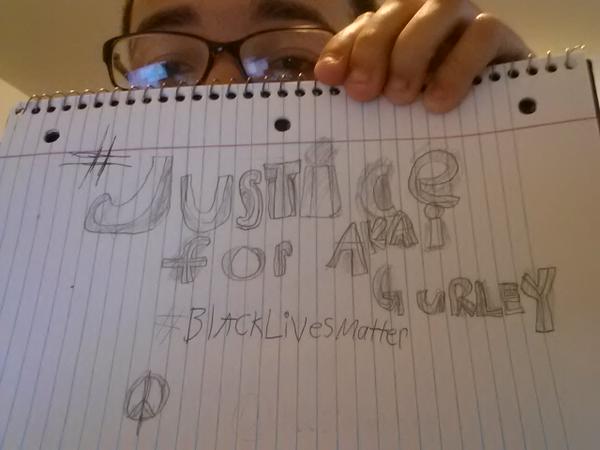 #Justice
for AKAi
GURLEY
#BlACKLivesMatter